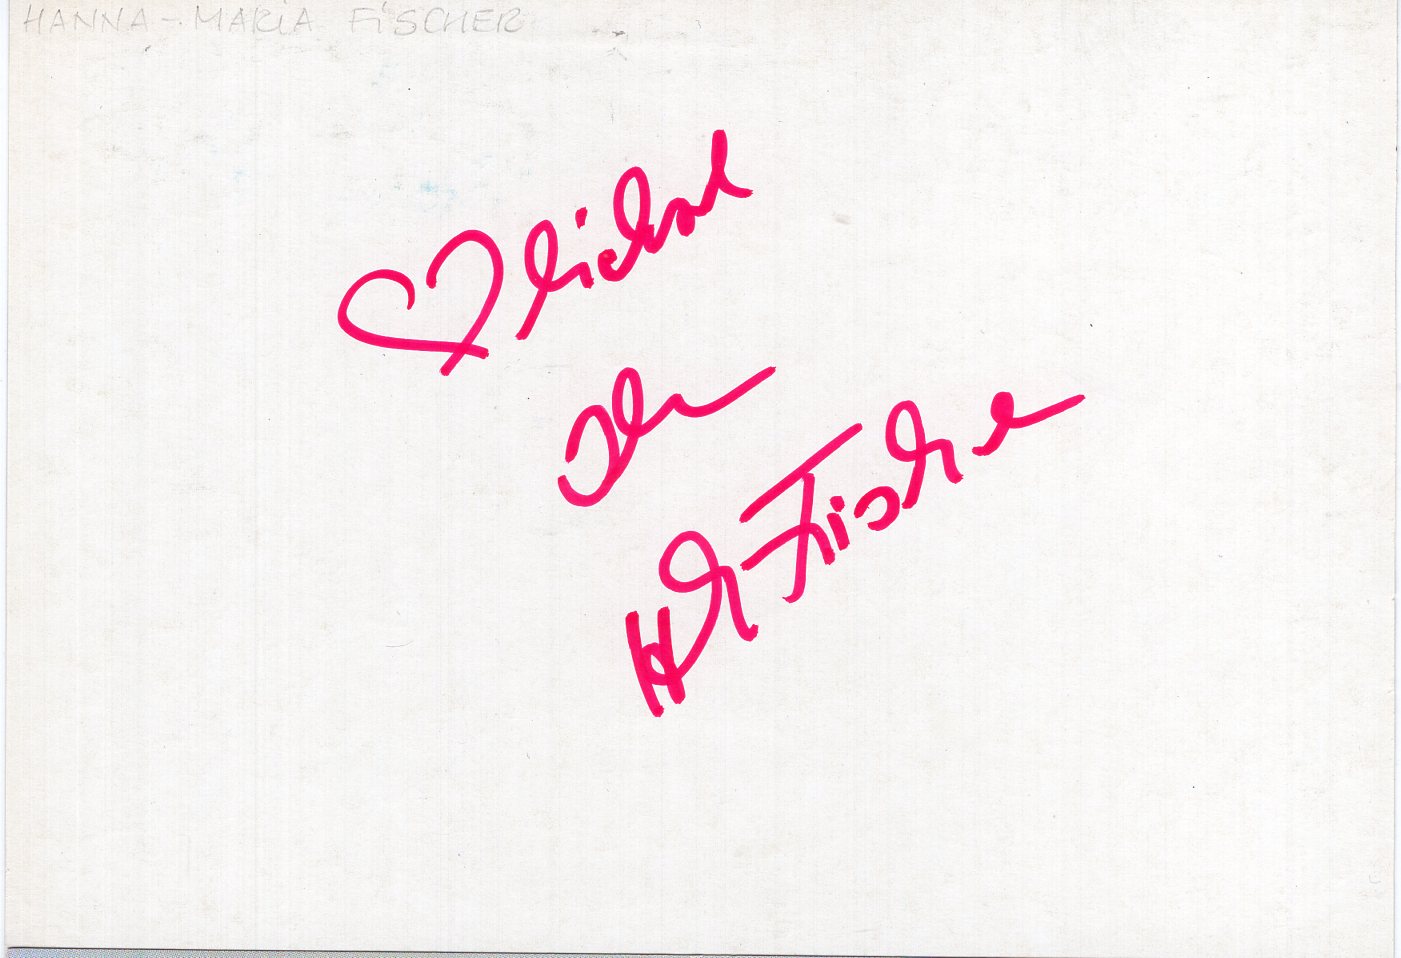 HANNA-MARIA FISCHER
♡lichst
Ihr
HM-Fischer